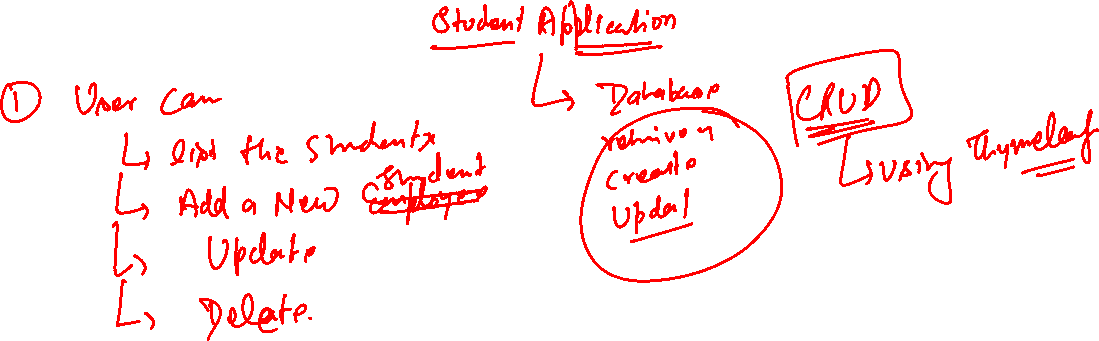 Student Application
① User Can
↳ list the Students
↳ Add a New Student
↳ Update
↳ Delete.
↳ Database
Create
Updat
CRUD
↳ Using Thymeleaf